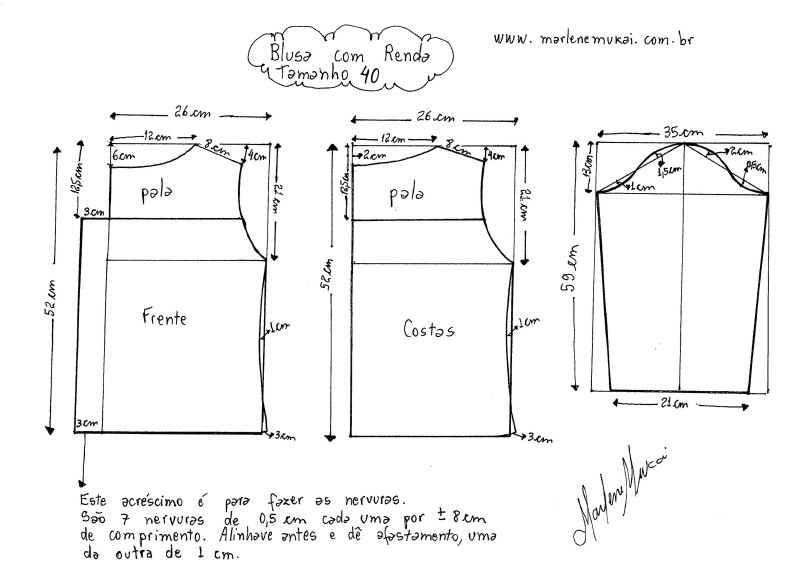 Blusa com Renda
Tamanho 40
www.marlenemukai.com.br
26 cm
12 cm
8 cm
4 cm
6 cm
12,5 cm
pala
21 cm
3 cm
52 cm
Frente
1 cm
3 cm
3 cm
26 cm
12 cm
8 cm
2 cm
4 cm
12,5 cm
pala
21 cm
52 cm
Costas
1 cm
3 cm
35 cm
13 cm
2 cm
1,5 cm
1 cm
59 cm
21 cm
Este acréscimo é para fazer as nervuras.
São 7 nervuras de 0,5 cm cada uma por ± 8 cm
de comprimento. Alinhave antes e dê afastamento, uma
da outra de 1 cm.
Marlene Mukai